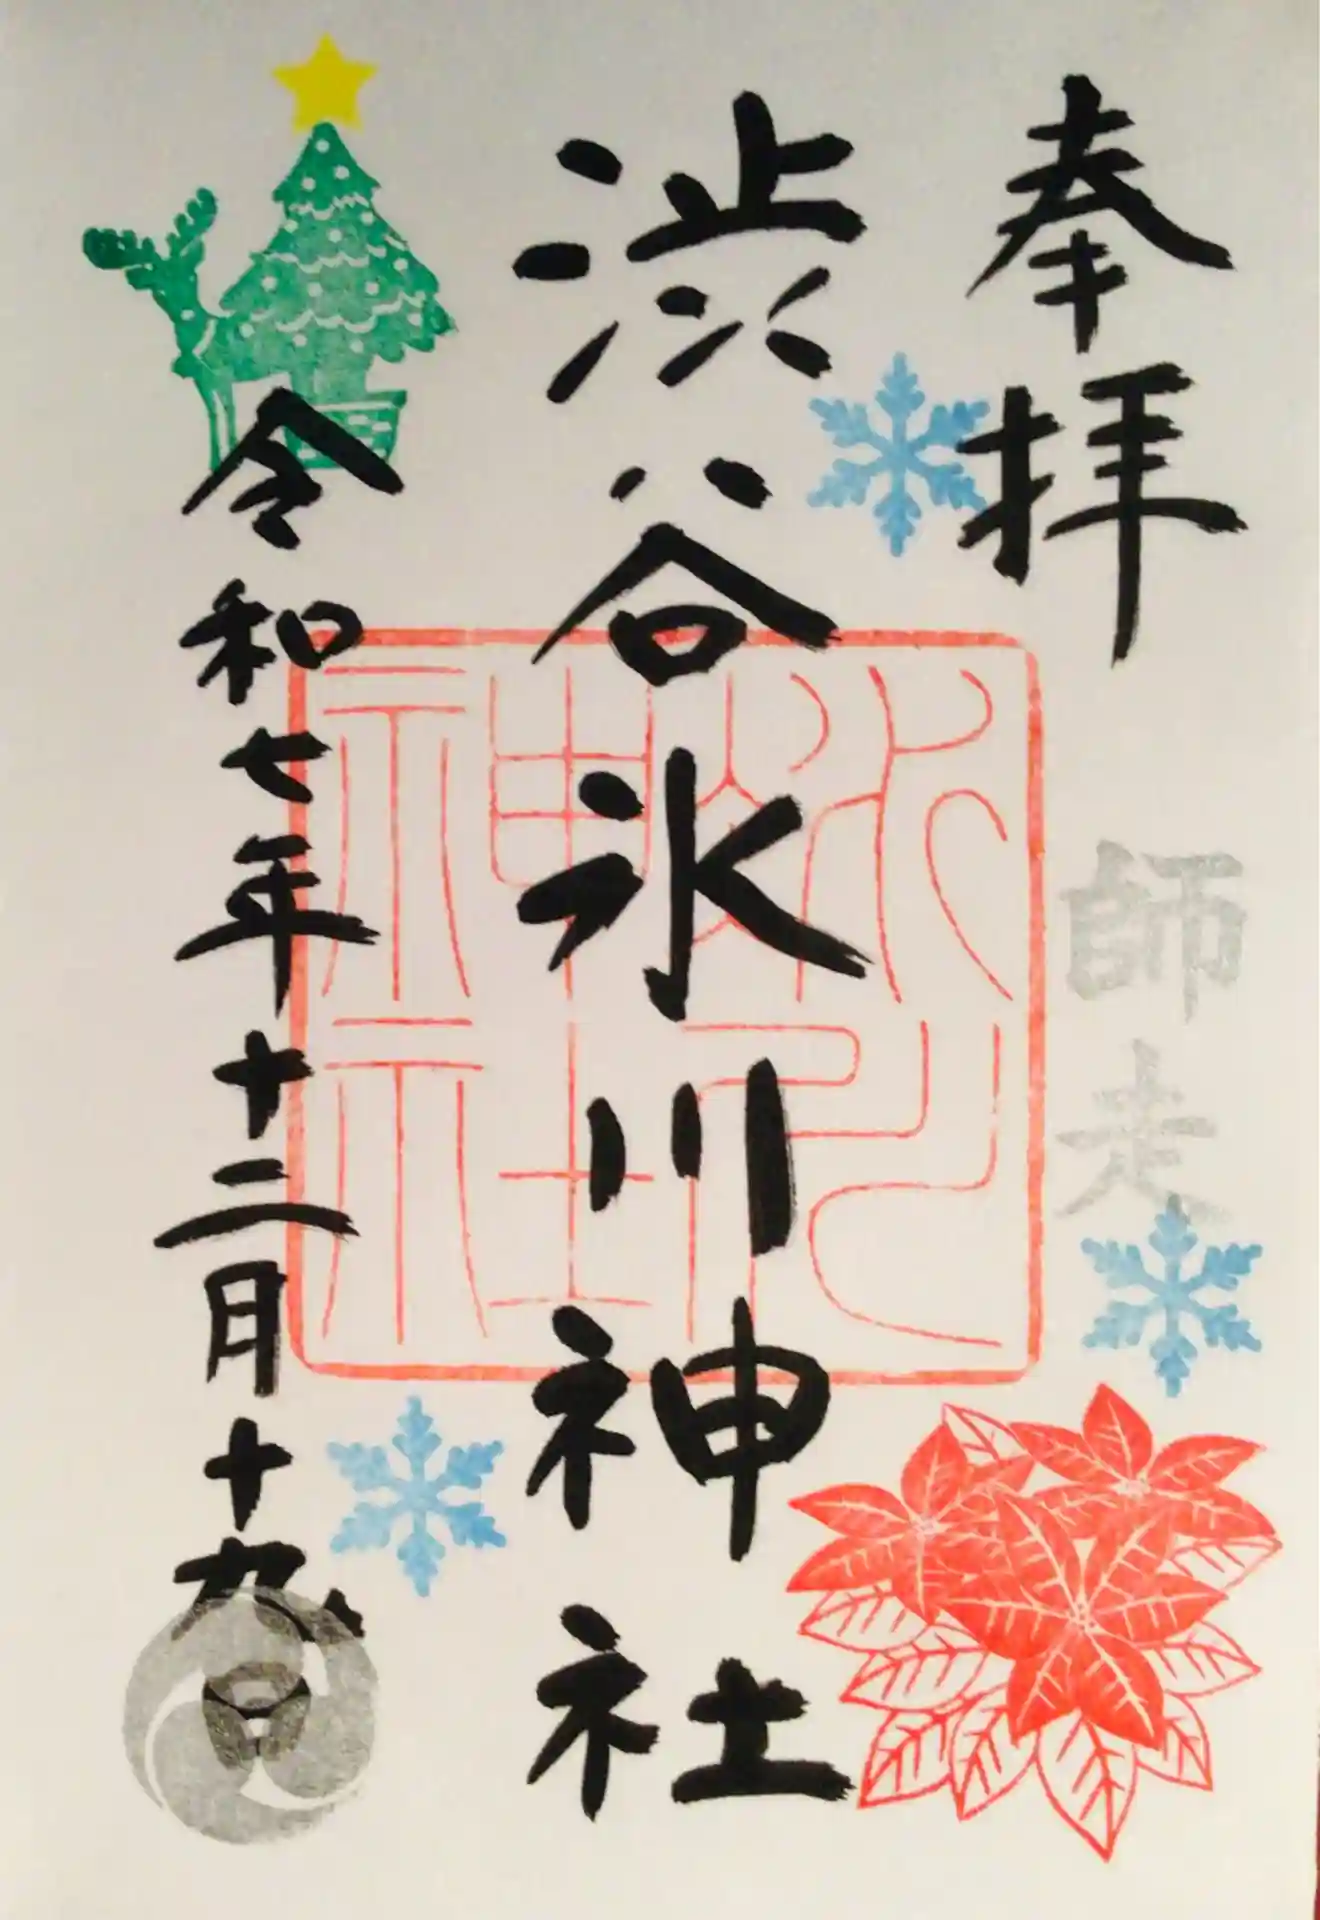 奉拝
師走
渋谷氷川神社
氷川
神社
令和七年十二月十九日